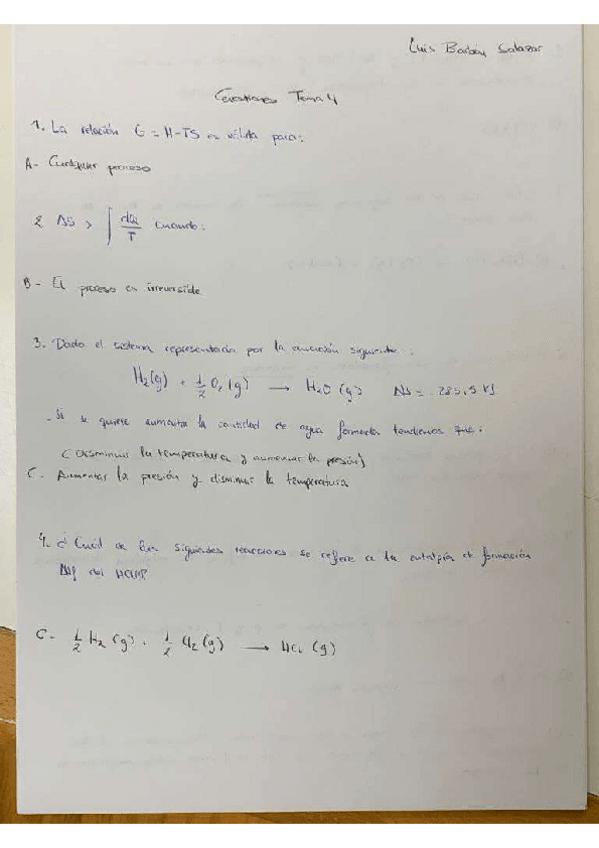 Luis Bastón Salazar
Cuestiones Tema 4
1. La relación G = H-TS es válida para:
A- Cualquier proceso
2 ΔS > ∫ dQ/T cuando:
B - El proceso es irreversible
3. Dado el sistema representado por la ecuación siguiente:
H2(g) + 1/2 O2(g) → H2O(g) ΔS = -285,5 KJ
- Si se quiere aumentar la cantidad de agua formada tendremos que:
(Disminuir la temperatura y aumentar la presión)
C. Aumentar la presión y disminuir la temperatura
4. ¿Cuál de las siguientes reacciones se refiere a la entalpía de formación
del HCl?
C- 1/2 H2(g) + 1/2 Cl2(g) → HCl (g)